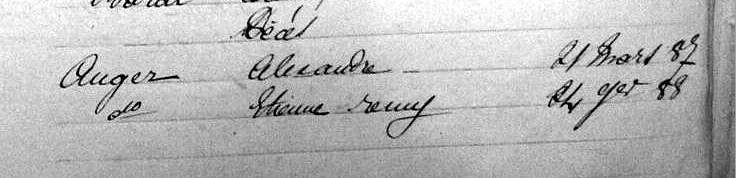 Décès
Auger Alexandre 21 Mars 87
do Etienne Remy 24 9er 88